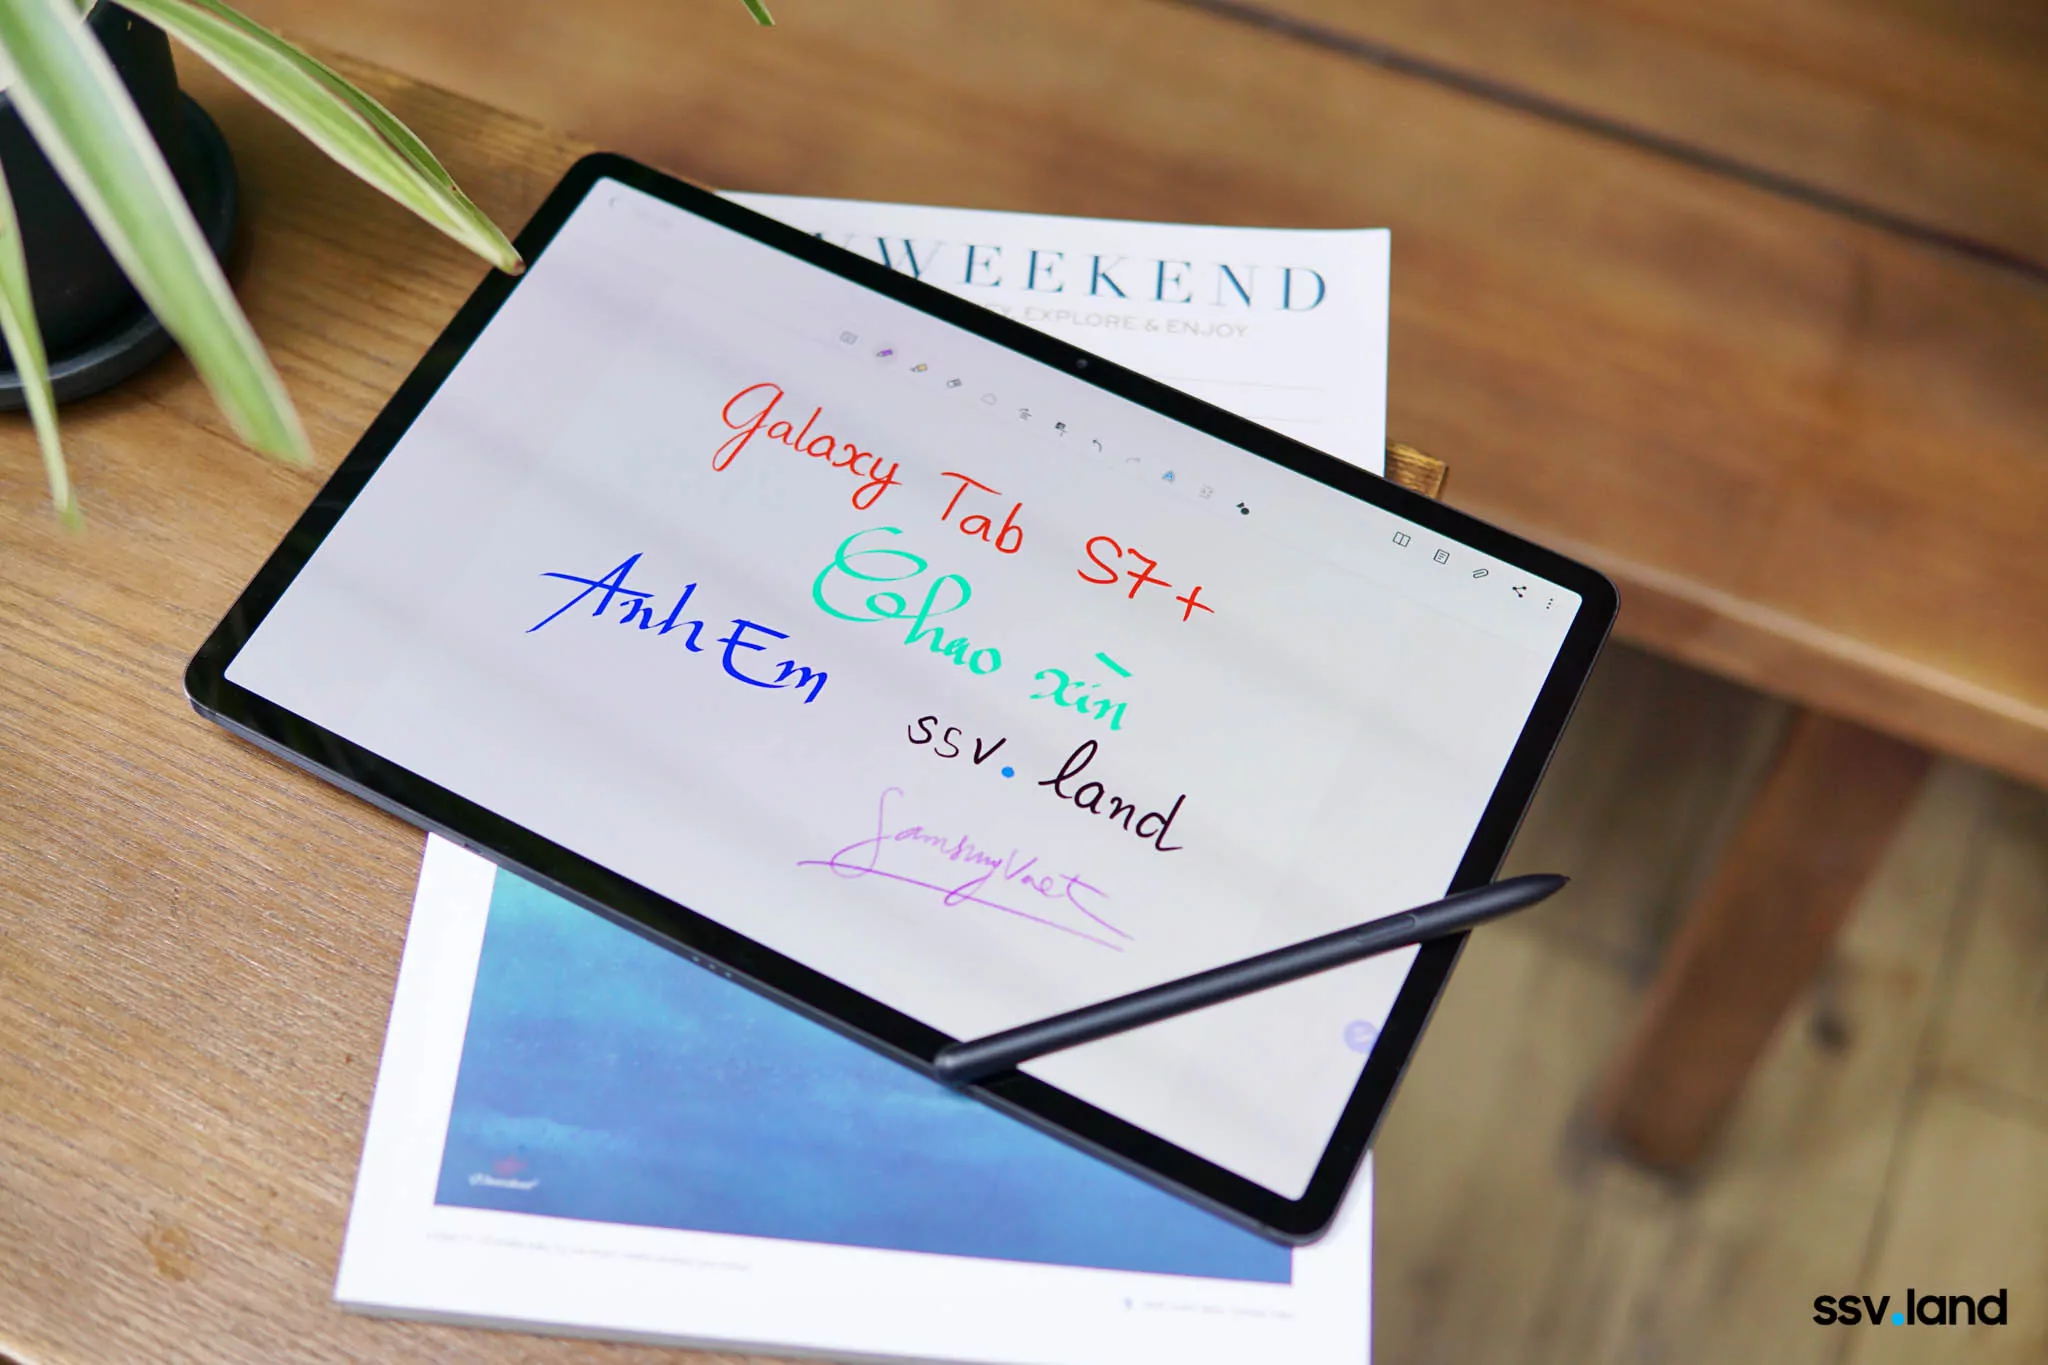 WEEKEND
EXPLORE & ENJOY
Galaxy Tab S7+
Chao xin
Anh Em
ssv.land
SamsungVi
ssv.land